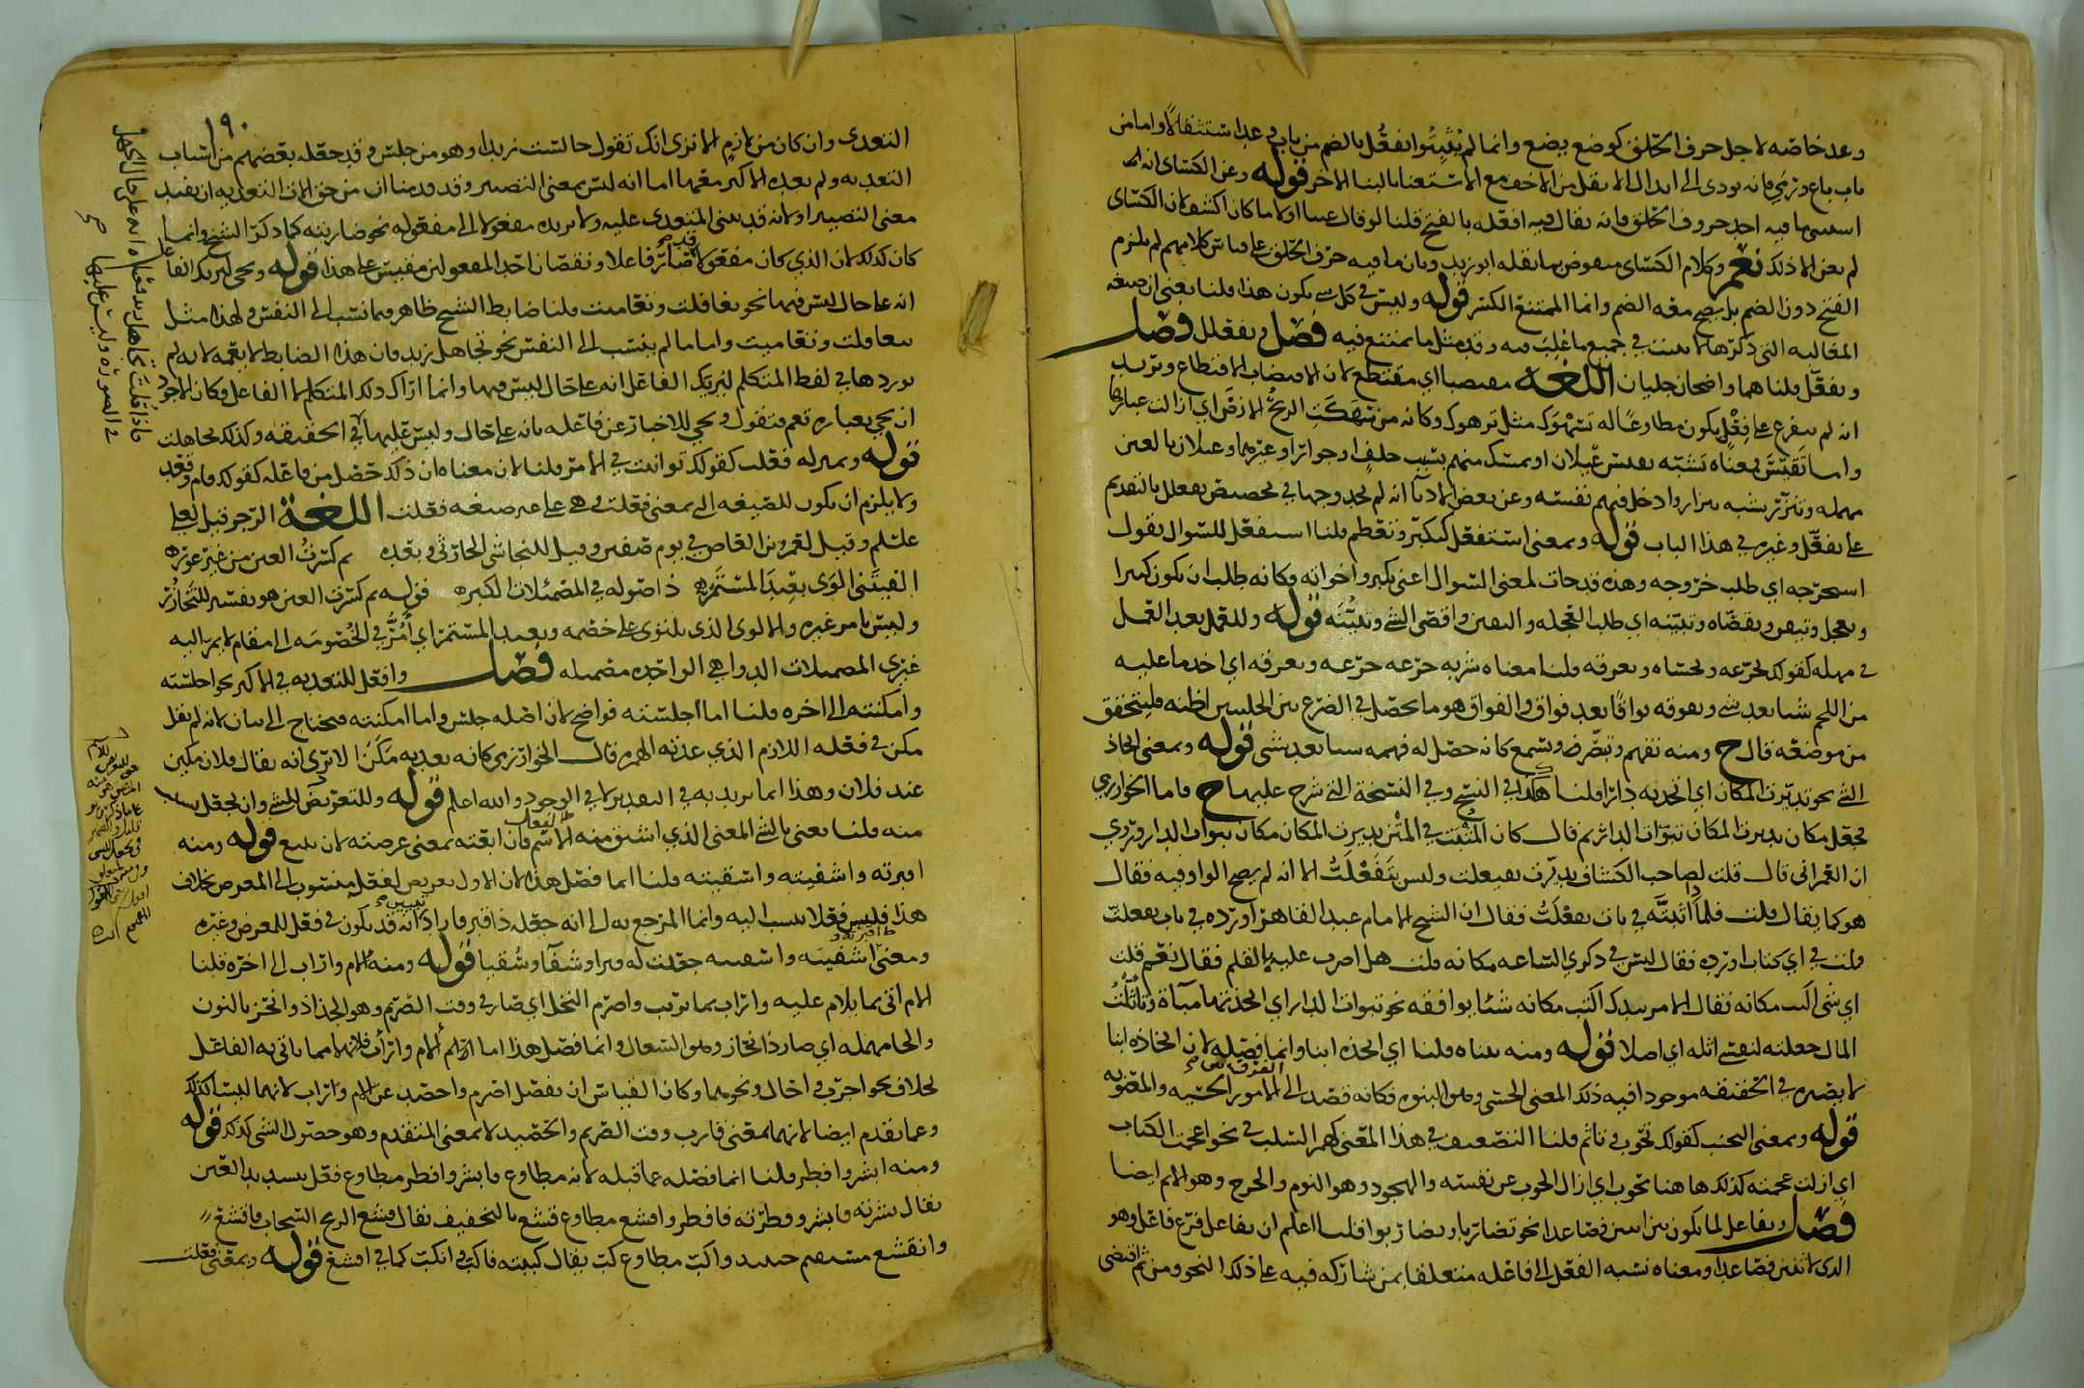 وعد خاصه لاجل حرف الحلق كوضع يضع وانما لم يثبتوا يفعُل بالضم من باب عدا استثقالا واما من
باب باع ورمى فانه يودي الى ابدال الاثقل من الاخف مع الاستغنا بالبنا الاخر قوله وعن الكسائي انه
استثنى ما فيه احد حروف الحلق فانه يقال فيه افعله بالفتح قلنا لو قال عينا او لاما كان اكشف لان الكسائي
لم يعن الا ذلك نعم وكلام الكسائي منقوض بما نقله ابو زيد وبان ما فيه حرف الحلق على قياس كلامهم لم يلزم
الفتح دون الضم بل يصح معه الضم وانما الممتنع الكسر قوله وليس في كل شي يكون هذا قلنا يعني ان صيغة
المغالبه التي ذكرها لا تثبت في جميع ما غلب فيه وقد مثل ما يمتنع فيه فصل وتفعلل فصل
وتفعّل قلنا هما واضحان جليان اللغة مقتضبا اي مقتطع لان الاقتضاب الاقتطاع وتريد
انه لم يتفرع على فعل يكون مطاوعا له تسهوك مثل ترهوك وكانه من سهكت الريح الارض اي ازالت عنها
واما تقيس فمعناه تشبه بقيس غيلان او تمسك منهم بسبب حلف او جوار او غيرهما وعيلان بالعين
مهمله وتنزر تشبه بنزار وادخل فيهم نفسه وعن بعض الادبا انه لم يجد وجها في تخصيص تفعلل بالتقديم
على تفعّل وغيره في هذا الباب قوله وبمعنى استفعل كتكبر وتعظم قلنا استفعل للسوال تقول
استخرجه اي طلب خروجه وهذه قد جات لمعنى السوال اعني تكبر واخواته فكانه طلب ان يكون كبيرا
وتعجل وتيقن وتقصاه وتبينه اي طلب العجله واليقين واقصى الشي وتبيُّنه قوله وللعمل بعد العمل
في مهله كقولك تجرّعه وتحساه وتعرقه قلنا معناه شربه جرعه جرعه وتعرقه اي اخذ ما عليه
من اللحم شيا بعد شي وتفوقه فواقا بعد فواق والفواق هو ما يحصل في الضرع بين الحلبتين اظنه فليتحقق
من موضعه قال ح ومنه تفهم وتبصر وتسمع كانه حصل له فهمه شيا بعد شي قوله وبمعنى اتخاذ
الشي نحو تديرت المكان اي اتخذته دارا قلنا هكذا في النسخ وفي النسخة التي شرح عليها ح فاما الخوارزمي
فجعل مكان تديرت المكان تبوات الدار ثم قال كان المثبت في المتن تديرت المكان مكان تبوات الدار وروي
ان العمراني قال قلت لصاحب الكشاف تديرت تفيعلت وليس بتفعّلت الا انه لم يصح الواو فيه فقال
هو كما يقال قلت فلماذا اثبتّه في باب تفعّلت فقال ان الشيخ الامام عبد القاهر اورده في باب تفعلت
قلت في اي كتاب اورده فقال ليس في ذكري الساعه مكانه قلت هل اضرب عليه بالقلم فقال نعم قلت
اي شي اكتب مكانه فقال الامر بيدك اكتب مكانه شيا يوافقه نحو تبوات الدار اي اتخذتها مبآة وتاثلت
المال جعلته لنفسي اثله اي اصلا قوله ومنه تبناه قلنا اي اتخذه ابنا وانما فصله لان اتخاذه ابنا
لا يصيره في الحقيقه موجود افيه ذلك المعنى الحسي وهو البنوه فكانه قصد الى الفرق بين الامور الحسيه والمعنويه
قوله وبمعنى التجنب كقولك تحوب وتاثم قلنا التضعيف في هذا المعنى كهمز السلب في نحو اعجمت الكتاب
اي ازلت عجمته كذلك هاهنا تحوب اي ازال الحوب عن نفسه والهجود وهو النوم والحرج وهو الاثم ايضا
فصل وتفاعل لما يكون من اثنين فصاعدا نحو تضاربا وتضاربوا قلنا اعلم ان تفاعل فرع فاعل وهو
الذي لاثنين فصاعدا ومعناه نسبه الفعل الى فاعله متعلقا بمن شاركه فيه على ذلك النحو ومن ثم اقتضى
١٩٠
التعدي وان كان من لازم الا ترى انك تقول جالست زيدا وهو من جلس وقد جعله بعضهم من اسباب
التعديه ولم يعده الاكثر معها اما انه ليس بمعنى التصيير وقد قدمنا ان من حق الات التعديه ان يفيد
معنى التصيير او لانه قد يبنى المتعدي عليه ولا يزيده مفعولا الى مفعوله نحو ضاربته كما ذكر الشيخ وانما
كان كذلك لان الذي كان مفعولا صار فاعلا ونقصان احد المفعولين مقيس على هذا قوله ويجي ليريك الفاعل
انه على حال ليس فيها نحو تغافلت وتعاميت قلنا ضابط الشيخ ظاهر فيما نسب الى النفس في هذا مثل
تغافلت وتعاميت واما ما لم ينسب الى النفس نحو تجاهل زيد فان هذا الضابط لا يعمه لانه لم
يوردها في لفظ المتكلم ليريك الفاعل انه على حال ليس فيها وانما اراك ذلك المتكلم لا الفاعل وكان الاجود
ان يجي بعباره تعم فتقول ويجي للاخبار عن فاعله بانه على حال وليس عليها في الحقيقه وكذلك تجاهلت
قوله وبمنزله فعلت كقولك توانيت في الامر قلنا لان معناه ان ذلك حصل من فاعله كقولك قام وقعد
ولا يلزم ان يكون للصيغه التي بمعنى فعلت في هي على غير صيغه فعلت اللغة الرجز قيل لعلي
علسلم وقيل لعمرو بن العاص في يوم صفين وقيل للنجاشي الحارثي وبعده ثم كسرت العين من غير عور
الفيتني الوى بعيد المستمر ذا صوله في المصمئلات الكبر قوله ثم كسرت العين هو تفسير للتخازر
وليس بامر غيره والالوى الذي يلتوي على خصمه وبعيد المستمر اي امُرُّ في الخصومه الى مقام لا يمر اليه
غيري المصمئلات الدواهي الواحده مصمئله فصل وافعل للتعديه في الاكثر نحو اجلسته
وامكنته الى اخره قلنا اما اجلسته فواضح لان اصله جلس واما امكنته فيحتاج الى بيان لانه لم يقل
مكن في فعله اللازم الذي عدته الهمزه قال الخوارزمي كانه تعديه مَكُنَ الا ترى انه يقال فلان مكين
عند فلان وهذا انما يريد به في التقدير لا في الوجود والله اعلم قوله وللتعريض للشي وان يجعل بسبب
منه قلنا يعني بالشي المعنى الذي اشتق منه الاسم فان ابعته بمعنى عرضته لان يباع قوله ومنه
اقبرته واشفيته واسقيته قلنا انما فصل هذا لان الاول تعريض لفعل منسوب الى المعرض بخلاف
هذا فليس فعلا ينسب اليه وانما المرجع به الى انه جعله ذا قبر فاراد انه قد يكون في فعل للمعرض وغيره
ومعنى اشفيته واسقيته جعلت له قبرا وشفآ وسُقيا قوله ومنه الام واراب الى اخره قلنا
الام اتى بما يلام عليه واراب بما يريب واصرم النخل اي صار في وقت الصريم وهو الجذاذ وانحز بالنون
والحا مهمله اي صار ذا نحاز وهو السعال وانما فصل هذا اما الام واراب فلانهما مما ياتي به الفاعل
بخلاف نحو اجرب واخال ونحوهما وكان القياس ان يفصل اصرم واحصد عن الام واراب لانهما ليستا كذلك
وعما تقدم ايضا لانهما بمعنى قارب وقت الصريم والحصيد لا بمعنى المتقدم وهو حصول الشي كذلك قوله
ومنه ابشر وافطر قلنا انما فصله عما قبله لانه مطاوع فابشر وافطر مطاوع فعّل بتشديد العين
يقال بشرته فابشر وفطّرته فافطر واقشع مطاوع قشع بالتخفيف يقال قشع الريح السحاب فاقشع
وانقشع واكب مطاوع كب يقال كببته فاكب وانكب كما في اقشع قوله وبمعنى فعلت